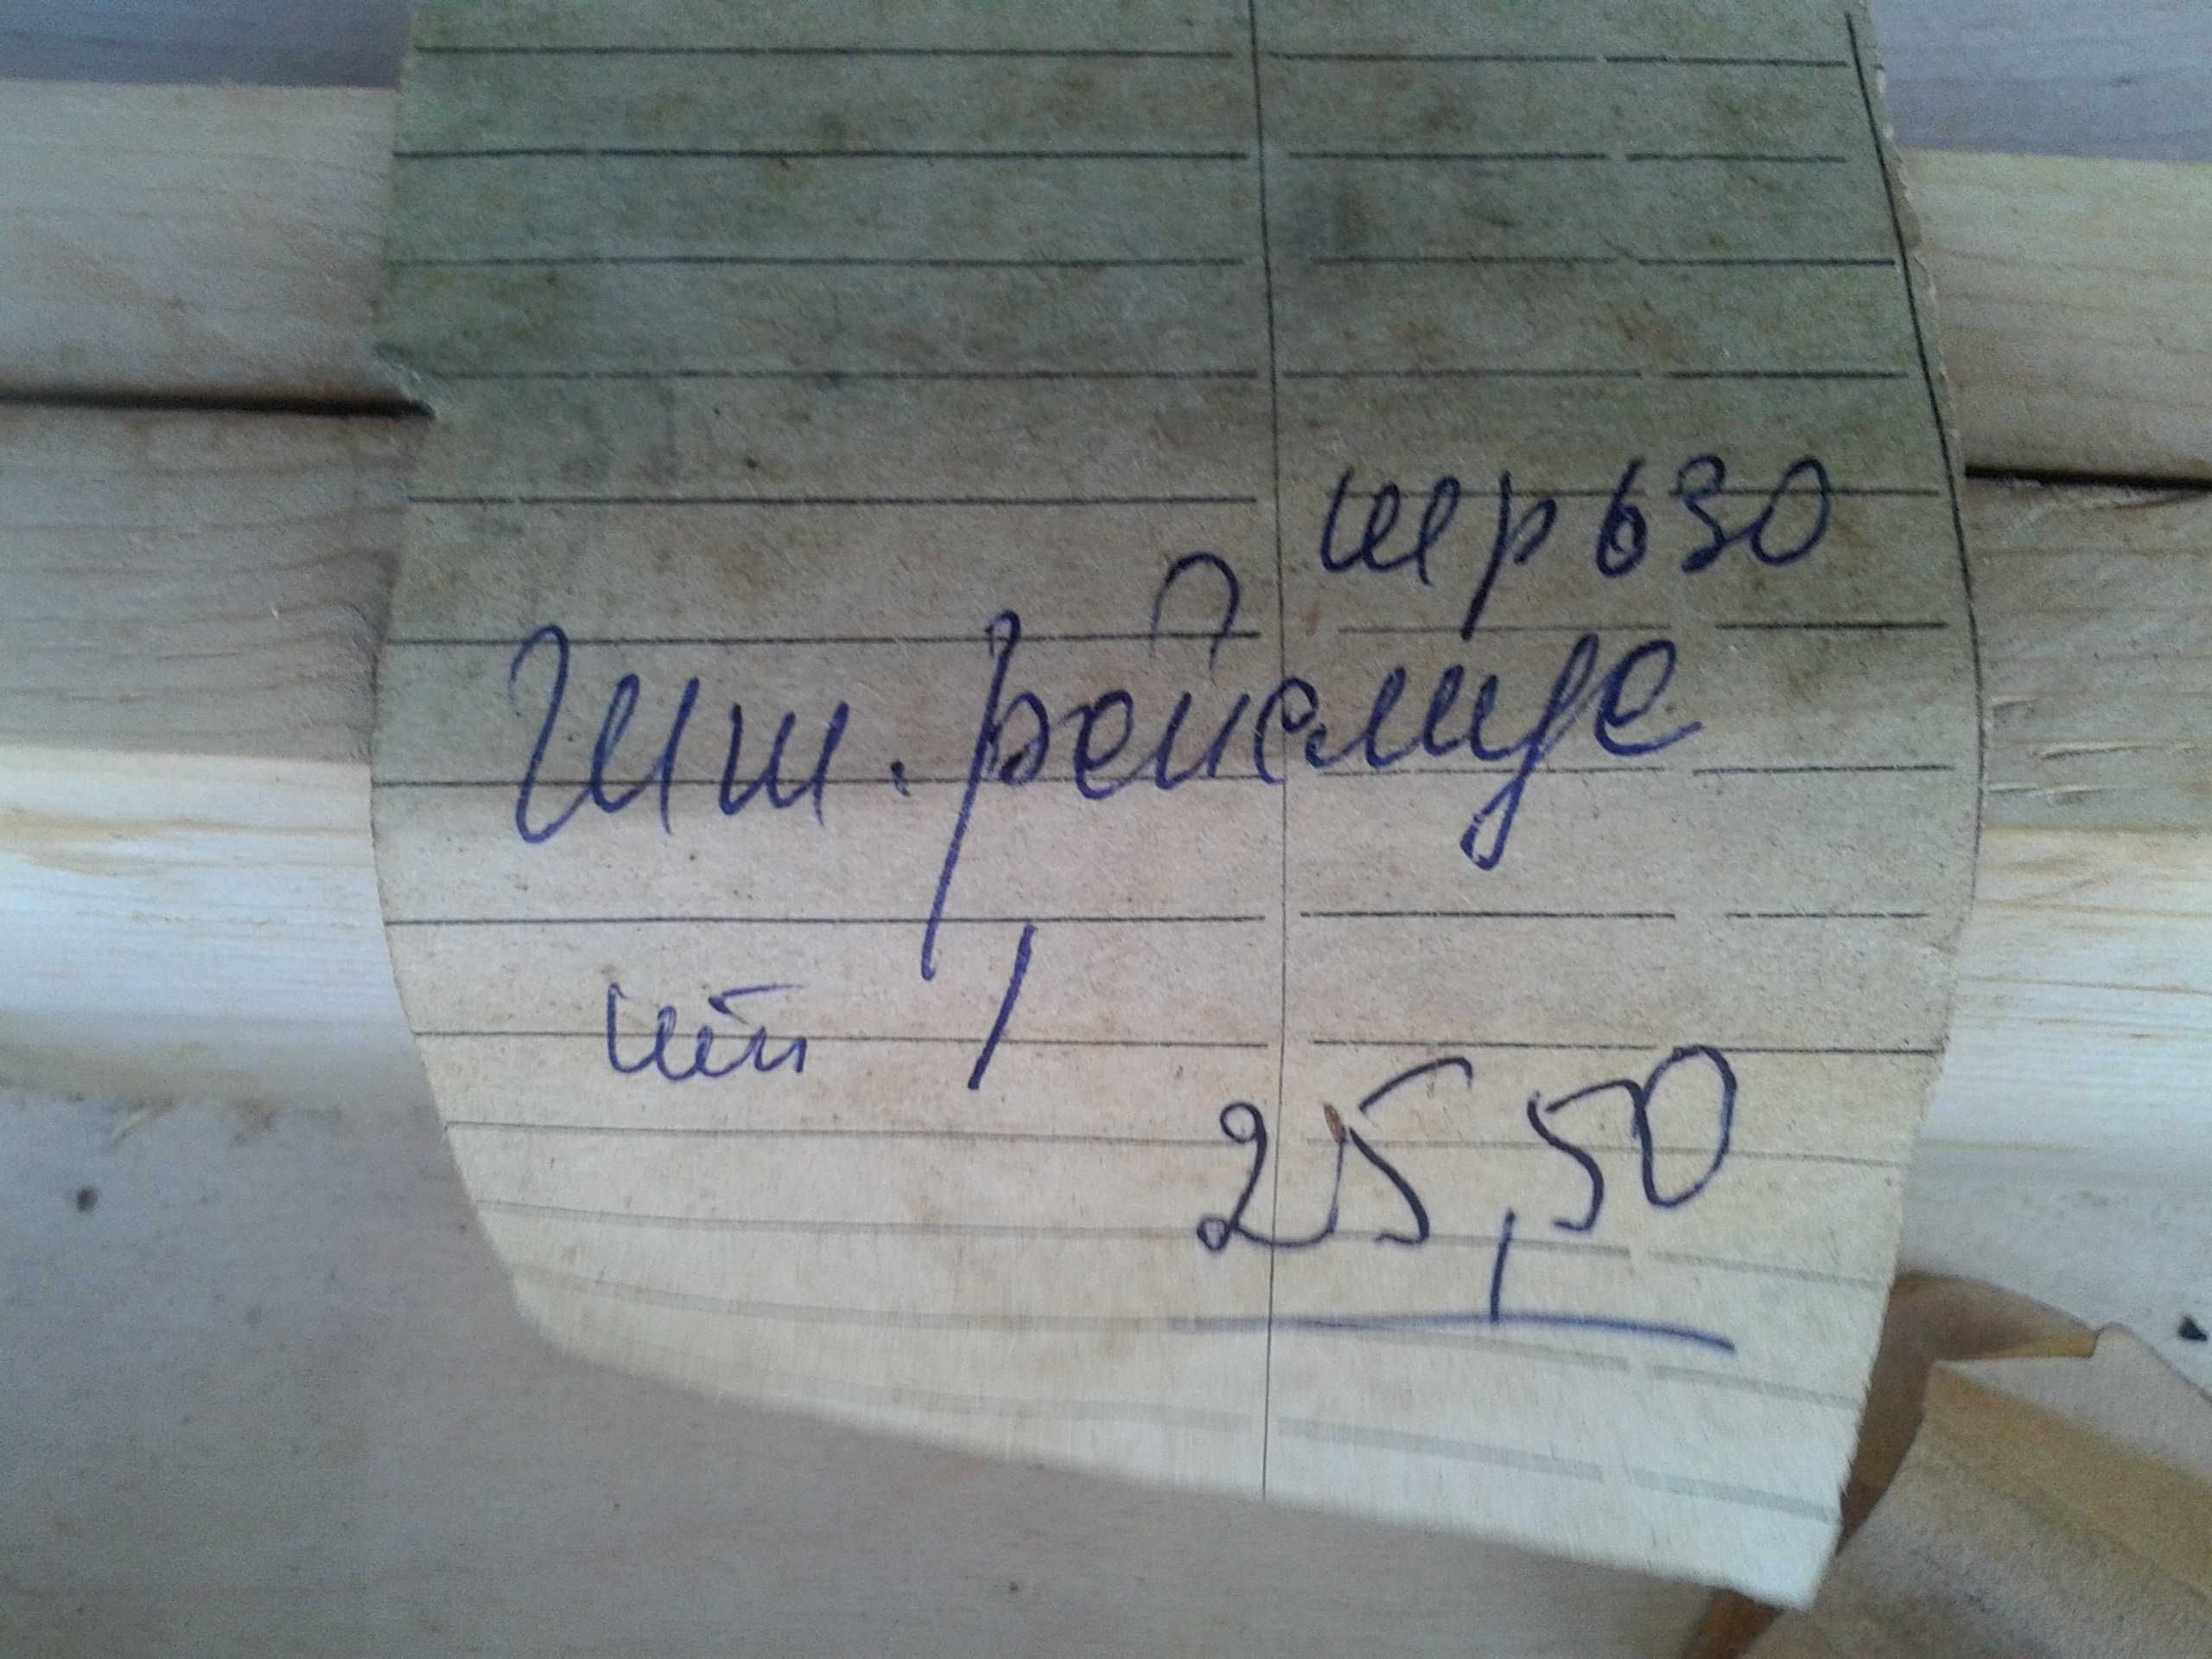 шр 630
Шт. рейсмус
шт 1
25,50